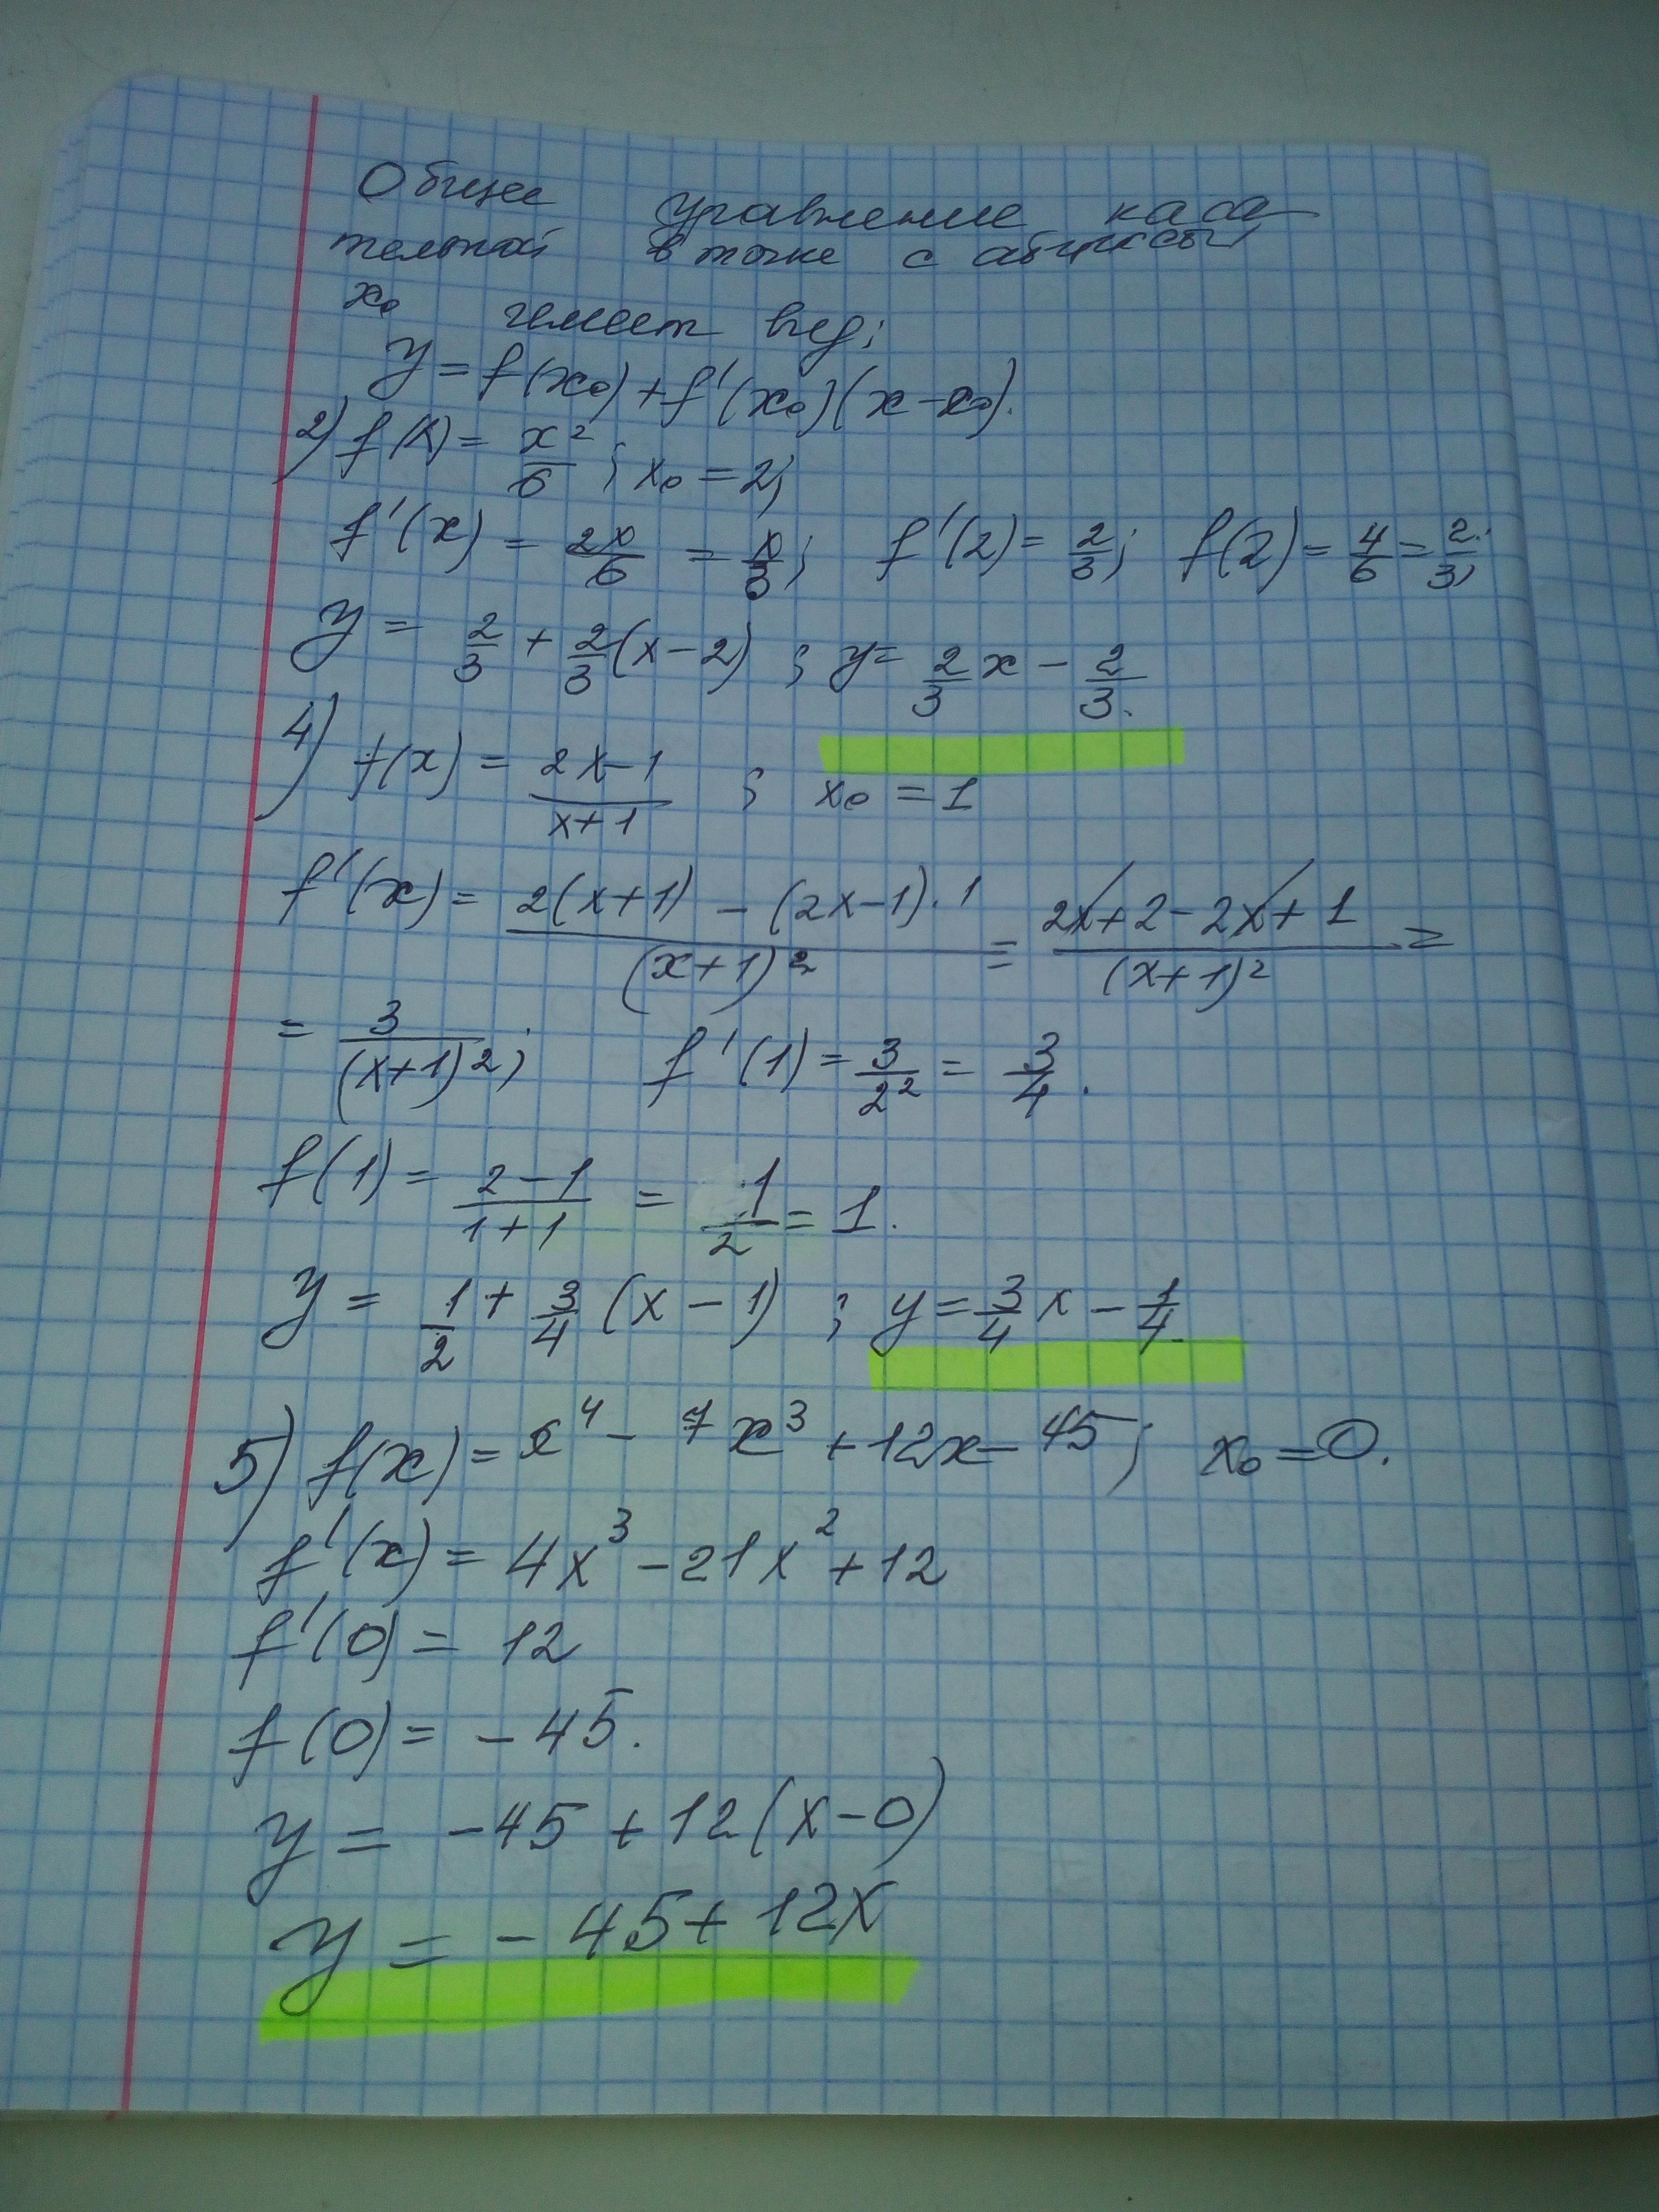 Общее уравнение каса
тельной в точке с абциссы
x₀ имеет вид;
y = f(x₀) + f'(x₀)(x - x₀).
2) f(x) = x²/6 ; x₀ = 2;
f'(x) = 2x/6 = x/3; f'(2) = 2/3; f(2) = 4/6 = 2/3;
y = 2/3 + 2/3(x - 2) ; y = 2/3 x - 2/3.
4) f(x) = (2x-1)/(x+1) ; x₀ = 1
f'(x) = (2(x+1) - (2x-1)·1)/(x+1)² = (2x+2-2x+1)/(x+1)² =
= 3/(x+1)²; f'(1) = 3/2² = 3/4.
f(1) = (2-1)/(1+1) = 1/2 = 1.
y = 1/2 + 3/4 (x - 1) ; y = 3/4 x - 1/4.
5) f(x) = x⁴ - 7x³ + 12x - 45; x₀ = 0.
f'(x) = 4x³ - 21x² + 12
f'(0) = 12
f(0) = -45.
y = -45 + 12(x-0)
y = -45 + 12x